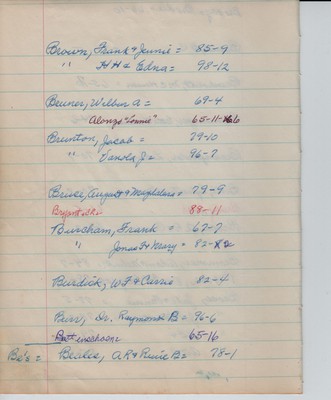 Brown, Frank & Jennie = 85-9
" H H & Edna = 98-12
Bruner, Wilbur A = 69-4
Alonzo "Lonnie" 65-11-
Brunton, Jacob = 79-10
" Vanola J = 96-7
Bruce, August & Magdalena = 79-9
Bryant 88-11
Burcham, Frank = 67-7
" Jonas H & Mary = 82-
Burdick, W F & Carrie 82-4
Burr, Dr. Raymond B = 96-6
65-16
Be's = Beales, A R & B = 78-1